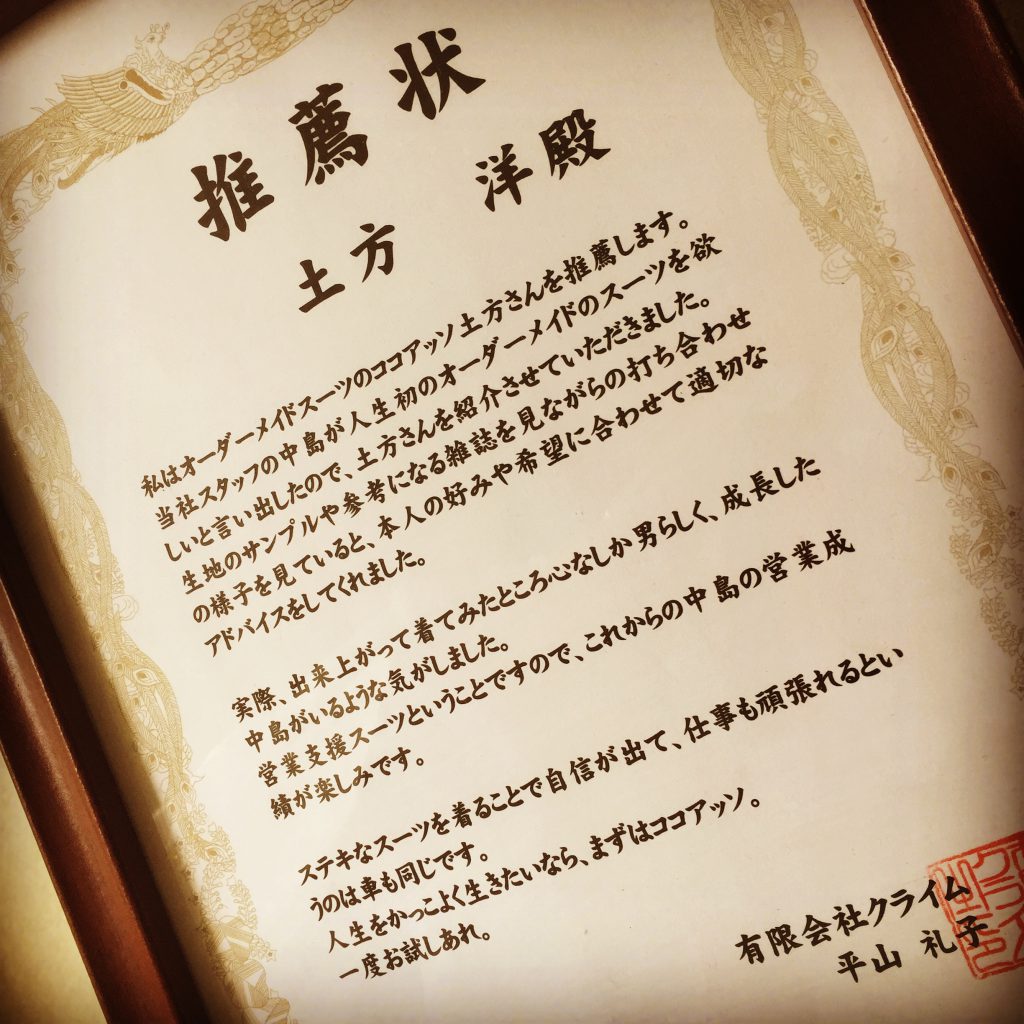 推薦状
土方 洋殿
私はオーダーメイドスーツのココアッソ土方さんを推薦します。
当社スタッフの中島が人生初のオーダーメイドのスーツを欲
しいと言い出したので、土方さんを紹介させていただきました。
生地のサンプルや参考になる雑誌を見ながらの打ち合わせ
の様子を見ていると、本人の好みや希望に合わせて適切な
アドバイスをしてくれました。
実際、出来上がって着てみたところ心なしか男らしく、成長した
中島がいるような気がしました。
営業支援スーツということですので、これからの中島の営業成
績が楽しみです。
ステキなスーツを着ることで自信が出て、仕事も頑張れるとい
うのは車も同じです。
人生をかっこよく生きたいなら、まずはココアッソ。
一度お試しあれ。
有限会社クライム
平山 礼子